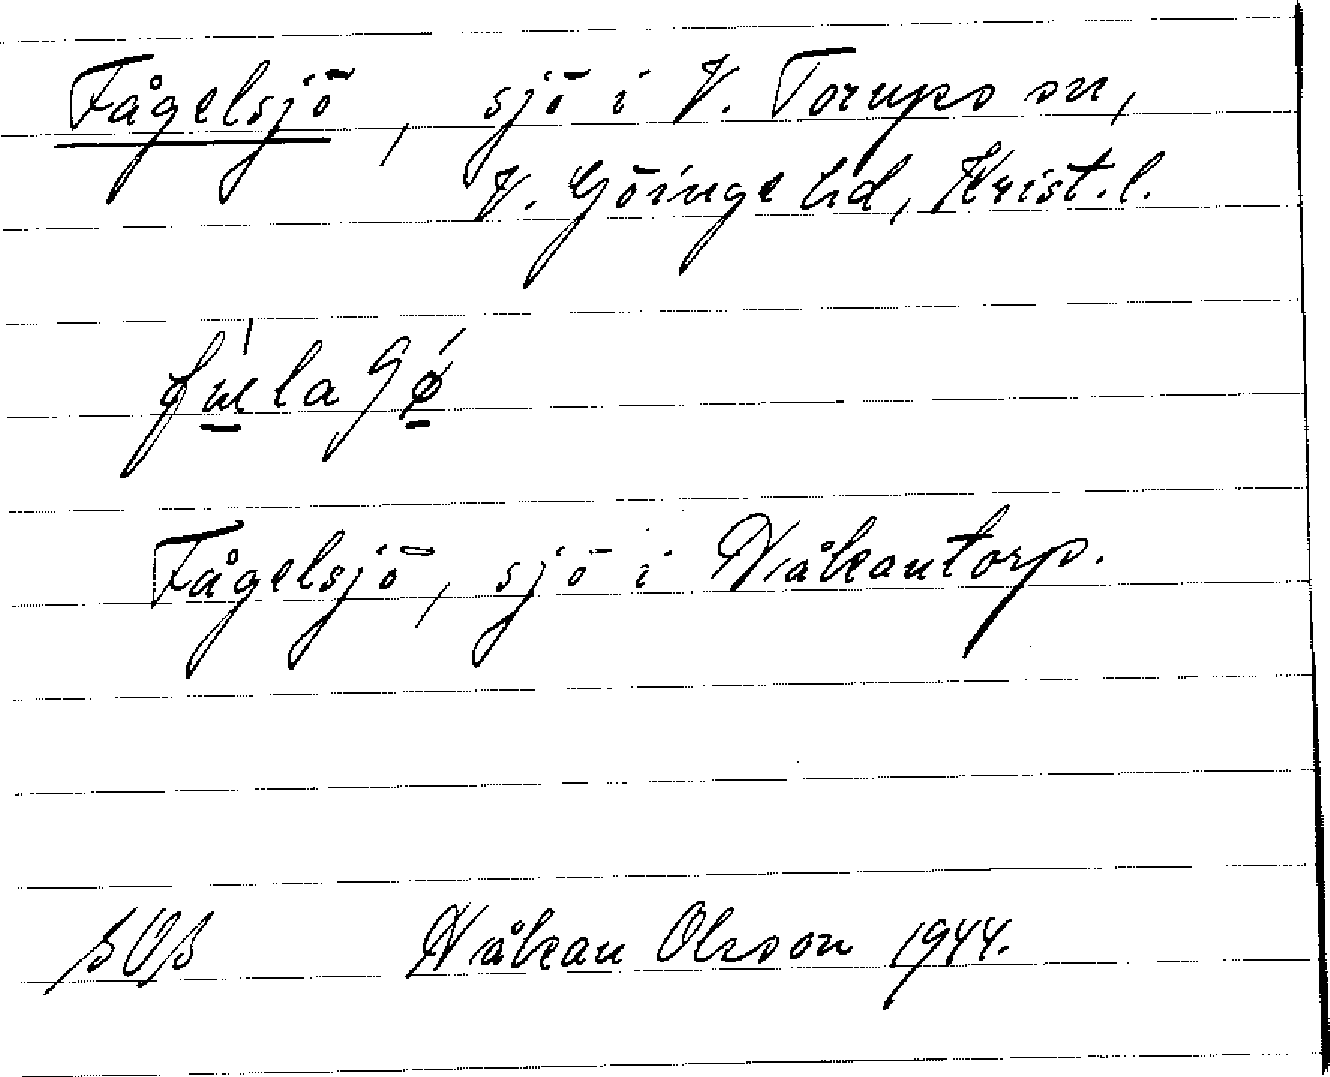 Fågelsjö, sjö i V. Torups sn,
V. Göinge hd, Krist. l.
Fågelsjö, sjö i Håkantorp.
Håkan Olsson 1944.